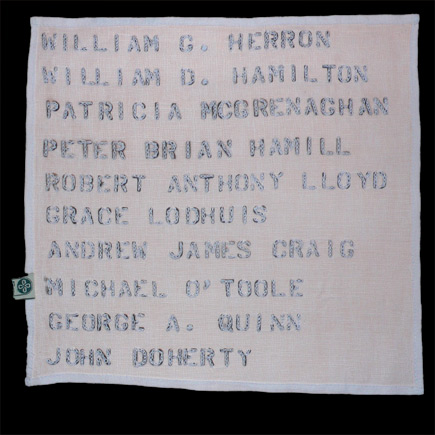 WILLIAM G. HERRON
WILLIAM D. HAMILTON
PATRICIA MCGRENAGHAN
PETER BRIAN HAMILL
ROBERT ANTHONY LLOYD
GRACE LODHUIS
ANDREW JAMES CRAIG
MICHAEL O'TOOLE
GEORGE A. QUINN
JOHN DOHERTY